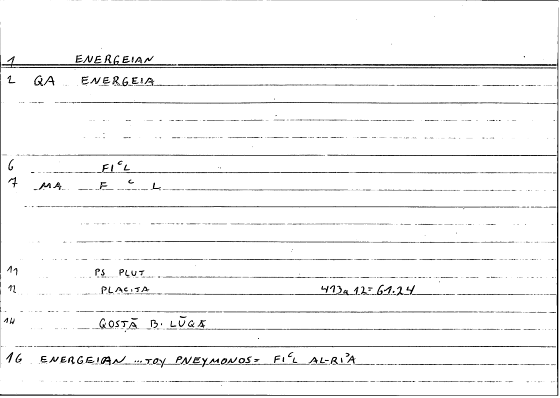 1 ENERGEIAN
2 QA ENERGEIA
6 FIᶜL
7 MA F ᶜ L
11 PS PLUT
12 PLACITA 413a12=61.24
14 QOSTĀ B. LŪQĀ
16 ENERGEIAN ...TOY PNEYMONOS= FIᶜL AL-RIʾA